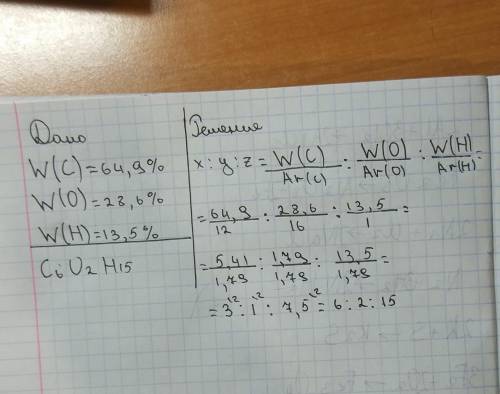 Дано
W(C)=64,9%
W(O)=28,6%
W(H)=13,5%
C6O2H15
Решение
x:y:z= W(C)/Ar(C) : W(O)/Ar(O) : W(H)/Ar(H) =
= 64,9/12 : 28,6/16 : 13,5/1 =
= 5,41/1,79 : 1,79/1,79 : 13,5/1,79 =
= 3·2 : 1·2 : 7,5·2 = 6:2:15